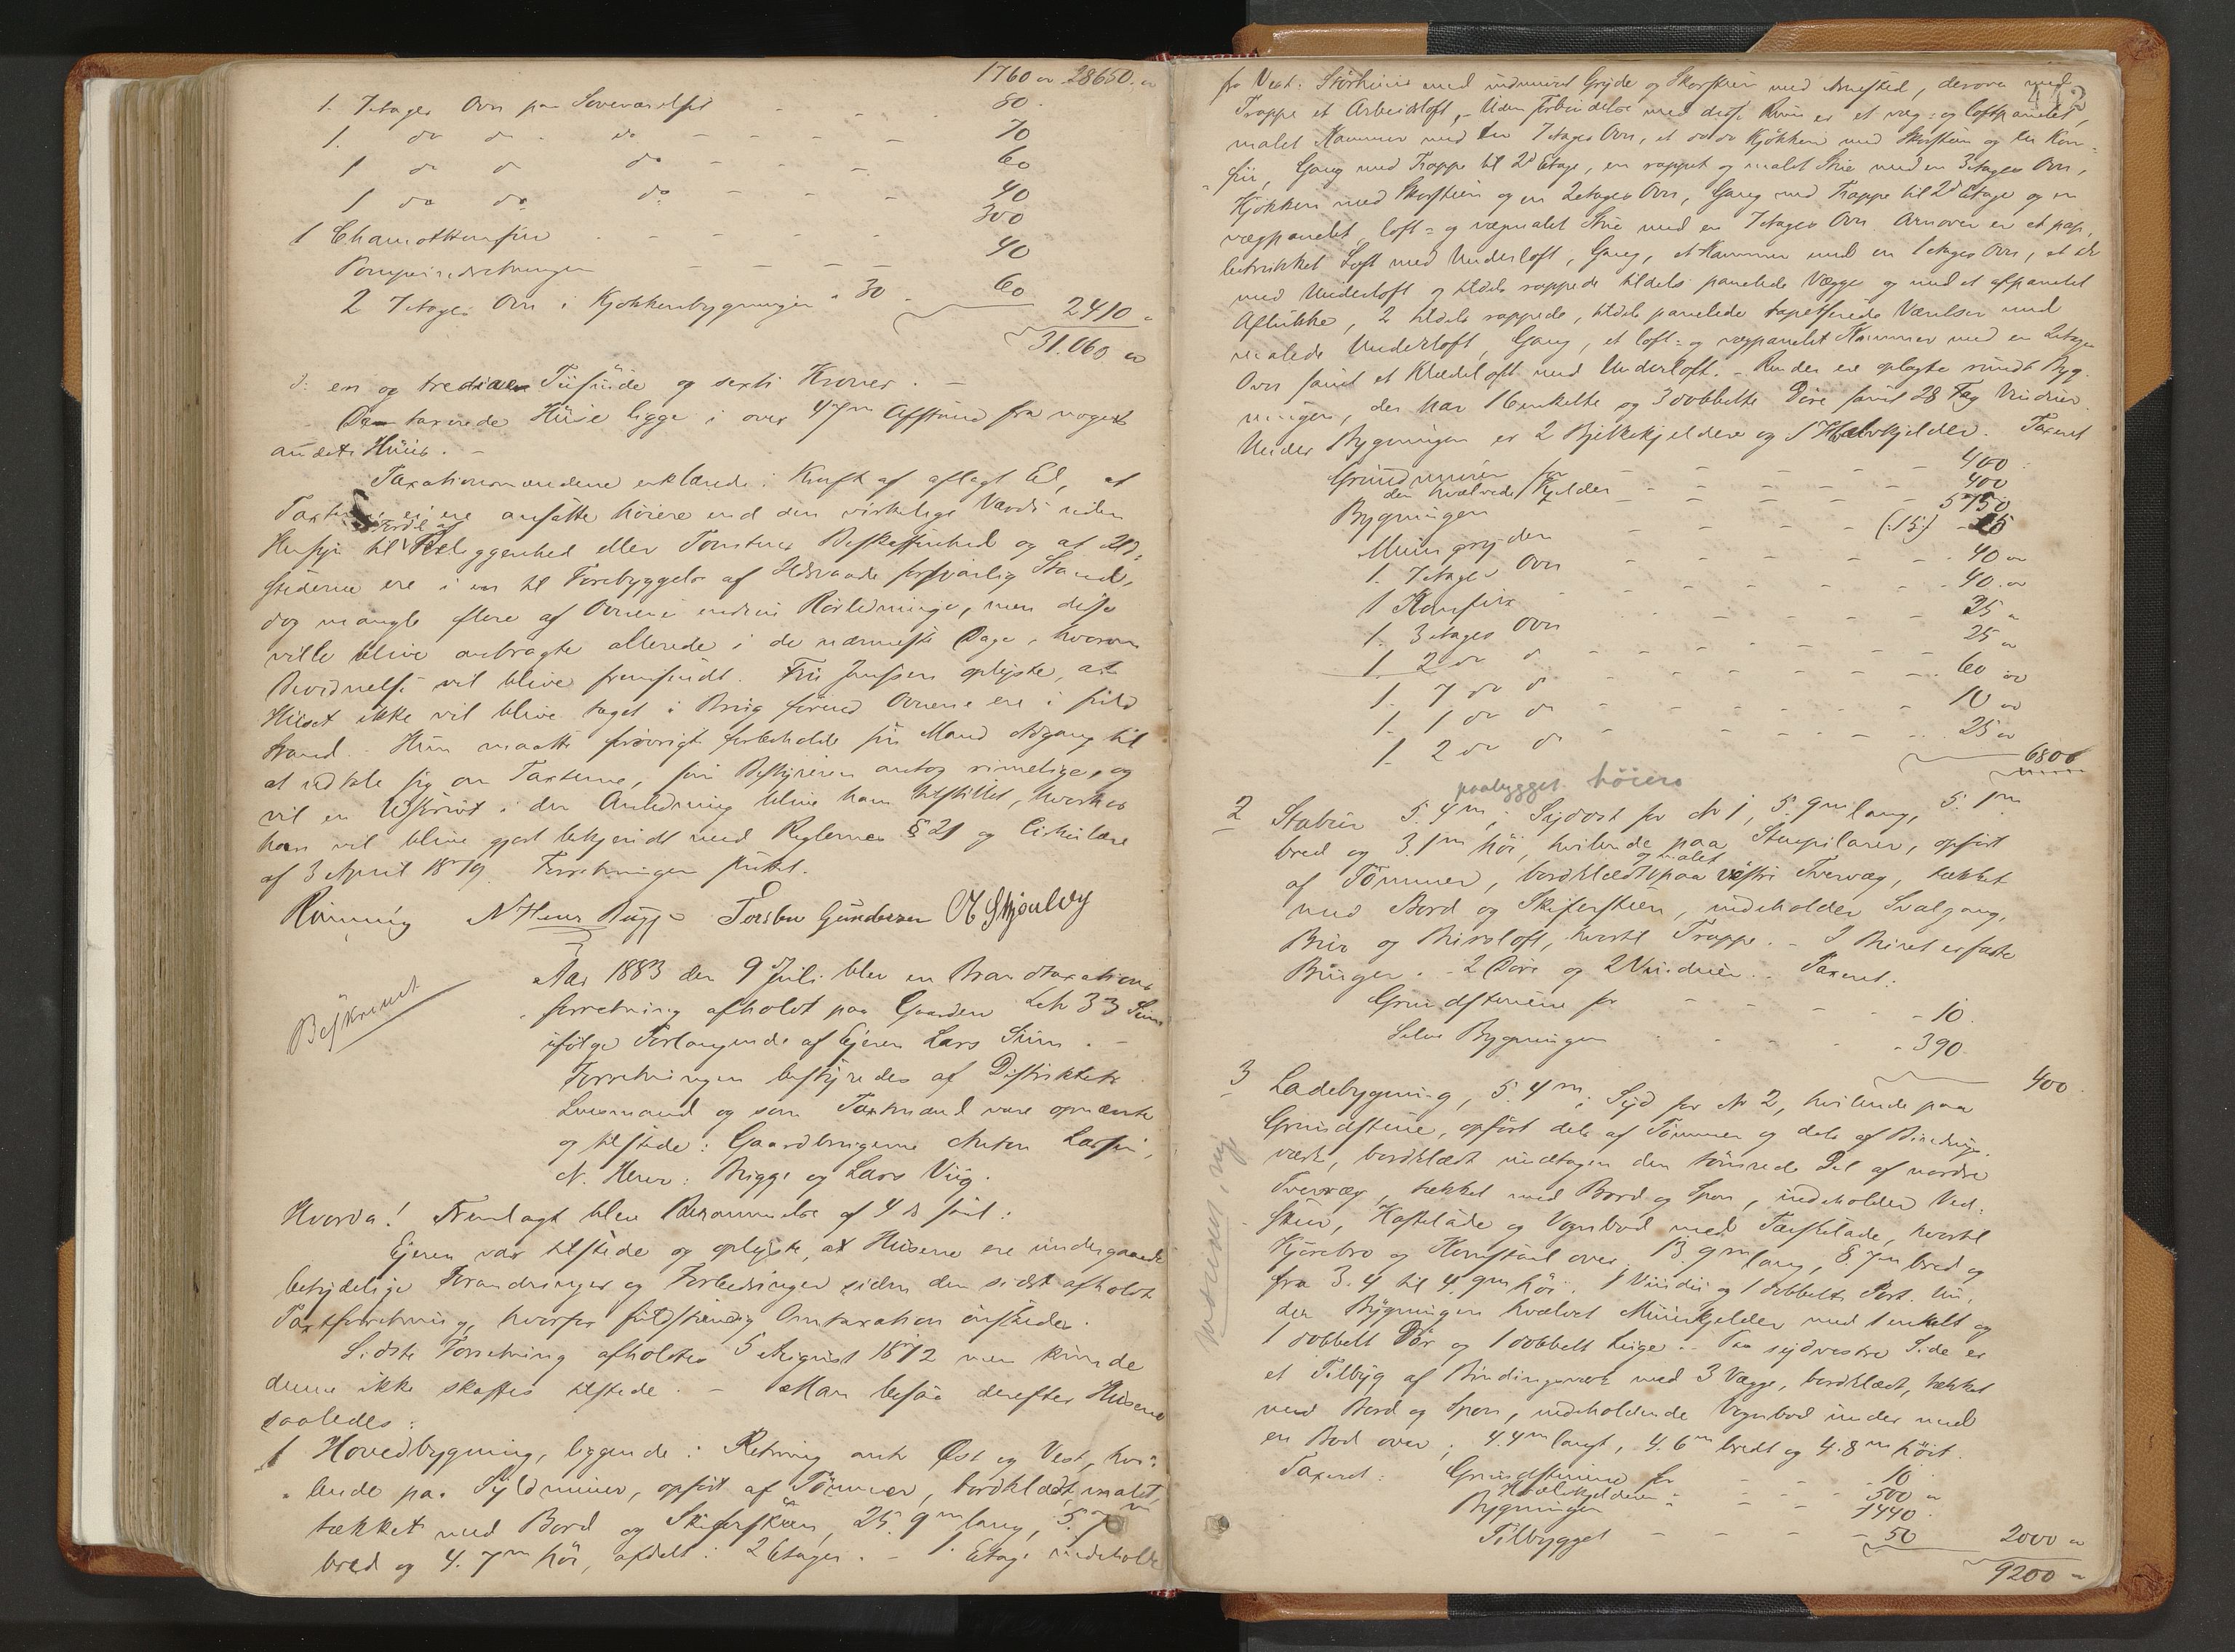 1760 " 28650. "
1. 7etages Ovn paa Soveværelset - - 80.
1. do do - do - - - 70
1 do do do - - - 60
1 do do do - - - 40
1 Chamottkomfur - - - - 300
Pompeindretningen - - - - 40
2 7etages Ovn i Kjøkkenbygningen a 30 - 60
2410 "
31.060 "
d: en og tredive Tusinde og sexti Kroner. -
De taxerede Huse ligge i over 47m Afstand fra noget
andet Huus. -
Taxationsmændene erklærede i Kraft af aflagt Ed, at
Taxterne ei ere ansatte høiere end den virkelige Værdi uden
Hensyn til Fordel af Beliggenhed eller Tomtens Beskaffenhed og at Ild-
stederne ere i en til Forebyggelse af Ildsvaade forsvarlig Stand,
dog mangle flere af Ovnene endnu Rørledninge, men disse
ville blive anbragte allerede i de nærmeste Dage, hvorom
Bevidnelse vil blive fremsendt. Fru Jenssen oplyste, at
Huset ikke vil blive taget i Brug førend Ovnene ere i fuld
Stand. Hun maatte forøvrigt forbeholde sin Mand Adgang til
at udtale sig om Taxterne, som Bestyreren antog rimelige, og
vil en Udskrivt i den Anledning blive ham tilstillet, hvorhos
han vil blive gjort bekjendt med Reglernes § 21 og Cirkulære
af 3 April 1879. Forretningen sluttet.
Rønning N Henr Bugge Torsten Gundersen O Skjoulvy
Beskrevet
Aar 1883 den 9 Juli blev en Brandtaxations
forretning afholdt paa Gaarden Lnr 33 Siem
ifølge Forlangende af Ejeren Lars Siem. -
Forretningen bestyredes af Distriktets
Lensmand og som Taxmænd vare opnævnte
og tilstede: Gaardbrugerne Anton Larsen,
N. Henr: Bugge og Lars Viig.
Hvorda! Fremlagt blev Berammelse af 4 ds saal:
Ejeren var tilstede og oplyste, at Husene ere undergaaede
betydelige Forandringer og Forbedringer siden den sidst afholdte
Taxtforretning, hvorfor fuldstændig Omtaxation ønskedes.
Sidste Forretning afholdtes 5 August 1872 men kunde
denne ikke skaffes tilstede. - Man besaa derefter Husene
saaledes:
1 Hovedbygning, liggende i Retning omtr Øst og Vest, hvi-
lende paa Syldmuur, opført af Tømmer, bordklædt, malet
tækket med Bord og Skifersteen, 25.9m lang, 5.7m
bred og 4.7m høi, afdelt i 2 Etager. - 1 Etage indeholder
442
fra Vest: Størhuus med indmuret Gryde og Skorsteen med Arnested, derover med
Trappe et Arbeidsloft, - Uden Forbindelse med disse Rum er et væg- og loftpanelet,
malet Kammer med en 7etages Ovn, et do do Kjøkken med Skorsteen og en Kom-
fur, Gang med Trappe til 2d Etage, en rappet og malet Stue med en 3etages Ovn,
Kjøkken med Skorsteen og en 2etages Ovn, Gang med Trappe til 2d Etage og en
vægpanelet, loft- og vægmalet Stue med en 7etages Ovn. Ovenover er et pap-
betrukket Loft med Underloft, Gang, et Kammer med en 1etages Ovn, et do
med Underloft og tildels rappede tildels panelede Vægge og med et afpanelet
Aflukke, 2 tildels rappede, tildels panelede tapetserede Værelser med
malede Underloft, Gang, et loft- og vægpanelet Kammer med en 2etages
Ovn samt et Klædeloft med Underloft. - Render ere oplagte rundt Byg-
ningen, der har 16 enkelte og 3 dobbelte Døre samt 28 Fag Vinduer.
Under Bygningen er 2 Bjelkekjeldere og 1 Hvælvkjelder. Taxeret
Grundmuren for - - - - - 400
den hvælvede Kjelder - - - - 400
Bygningen - - - - 5750
Muurgryden - - - (:15:) - 25
1. 7etages Ovn - - - - 40 "
1 Komfur - - - - 40. "
1. 3etages Ovn - - - 25 "
1 2 do do - - - - 25 "
1. 7 do do - - - - 60 "
1. 1 do do - - - - 10 "
1 2 do do - - - - 25 "
6800
paabygget høiere
2 Stabur 5.4m i Sydost for No 1, 5.9m lang, 5.1m
bred og 3.1m høi, hvilende paa Steenpilarer, opført
af Tømmer, bordklædt og malet paa vestre Tvervæg, tækket
med Bord og Skifersteen, indeholder Svalgang,
Bur og Bursloft, hvortil Trappe. - I Buret er faste
Binger. - 2 Døre og 2 Vinduer. - Taxeret:
Grundstenene for - - - - 10.
Selve Bygningen - - - 390.
400.
3 Ladebygning, 5.4m i Syd for No 2, hvilende paa
Grundstene, opført dels af Tømmer og dels af Bindings-
værk, bordklædt undtagen den tømrede Del af nordre
Tvervæg, tækket med Bord og Spon, indeholder Ved-
skur, Høstelade og Vognbod med Tærskelade, hvortil
Kjørebro og Kornstaal over. 13.9m lang, 8.7m bred og
fra 3.4 til 4.9m høi. 1 Vindu og 1 dobbelt Port. Un-
der Bygningen hvælvet Muurkjelder med 1 enkelt og
1 dobbelt Dør og 1 dobbelt Luge. - Paa sydvestre Side er
et Tilbyg af Bindingsværk med 3 Vægge, bordklædt, tækket
med Bord og Spon, indeholdende Vognbod under med
en Bod over, 4.4m langt, 4.6m bredt og 4.8m høit.
Taxeret: Grundstenene for - - - 10
Hvælvkjelderen " - - - 500 "
Bygningen - - - 1440.
Tilbygget - - - - 50 2000 "
9200 "